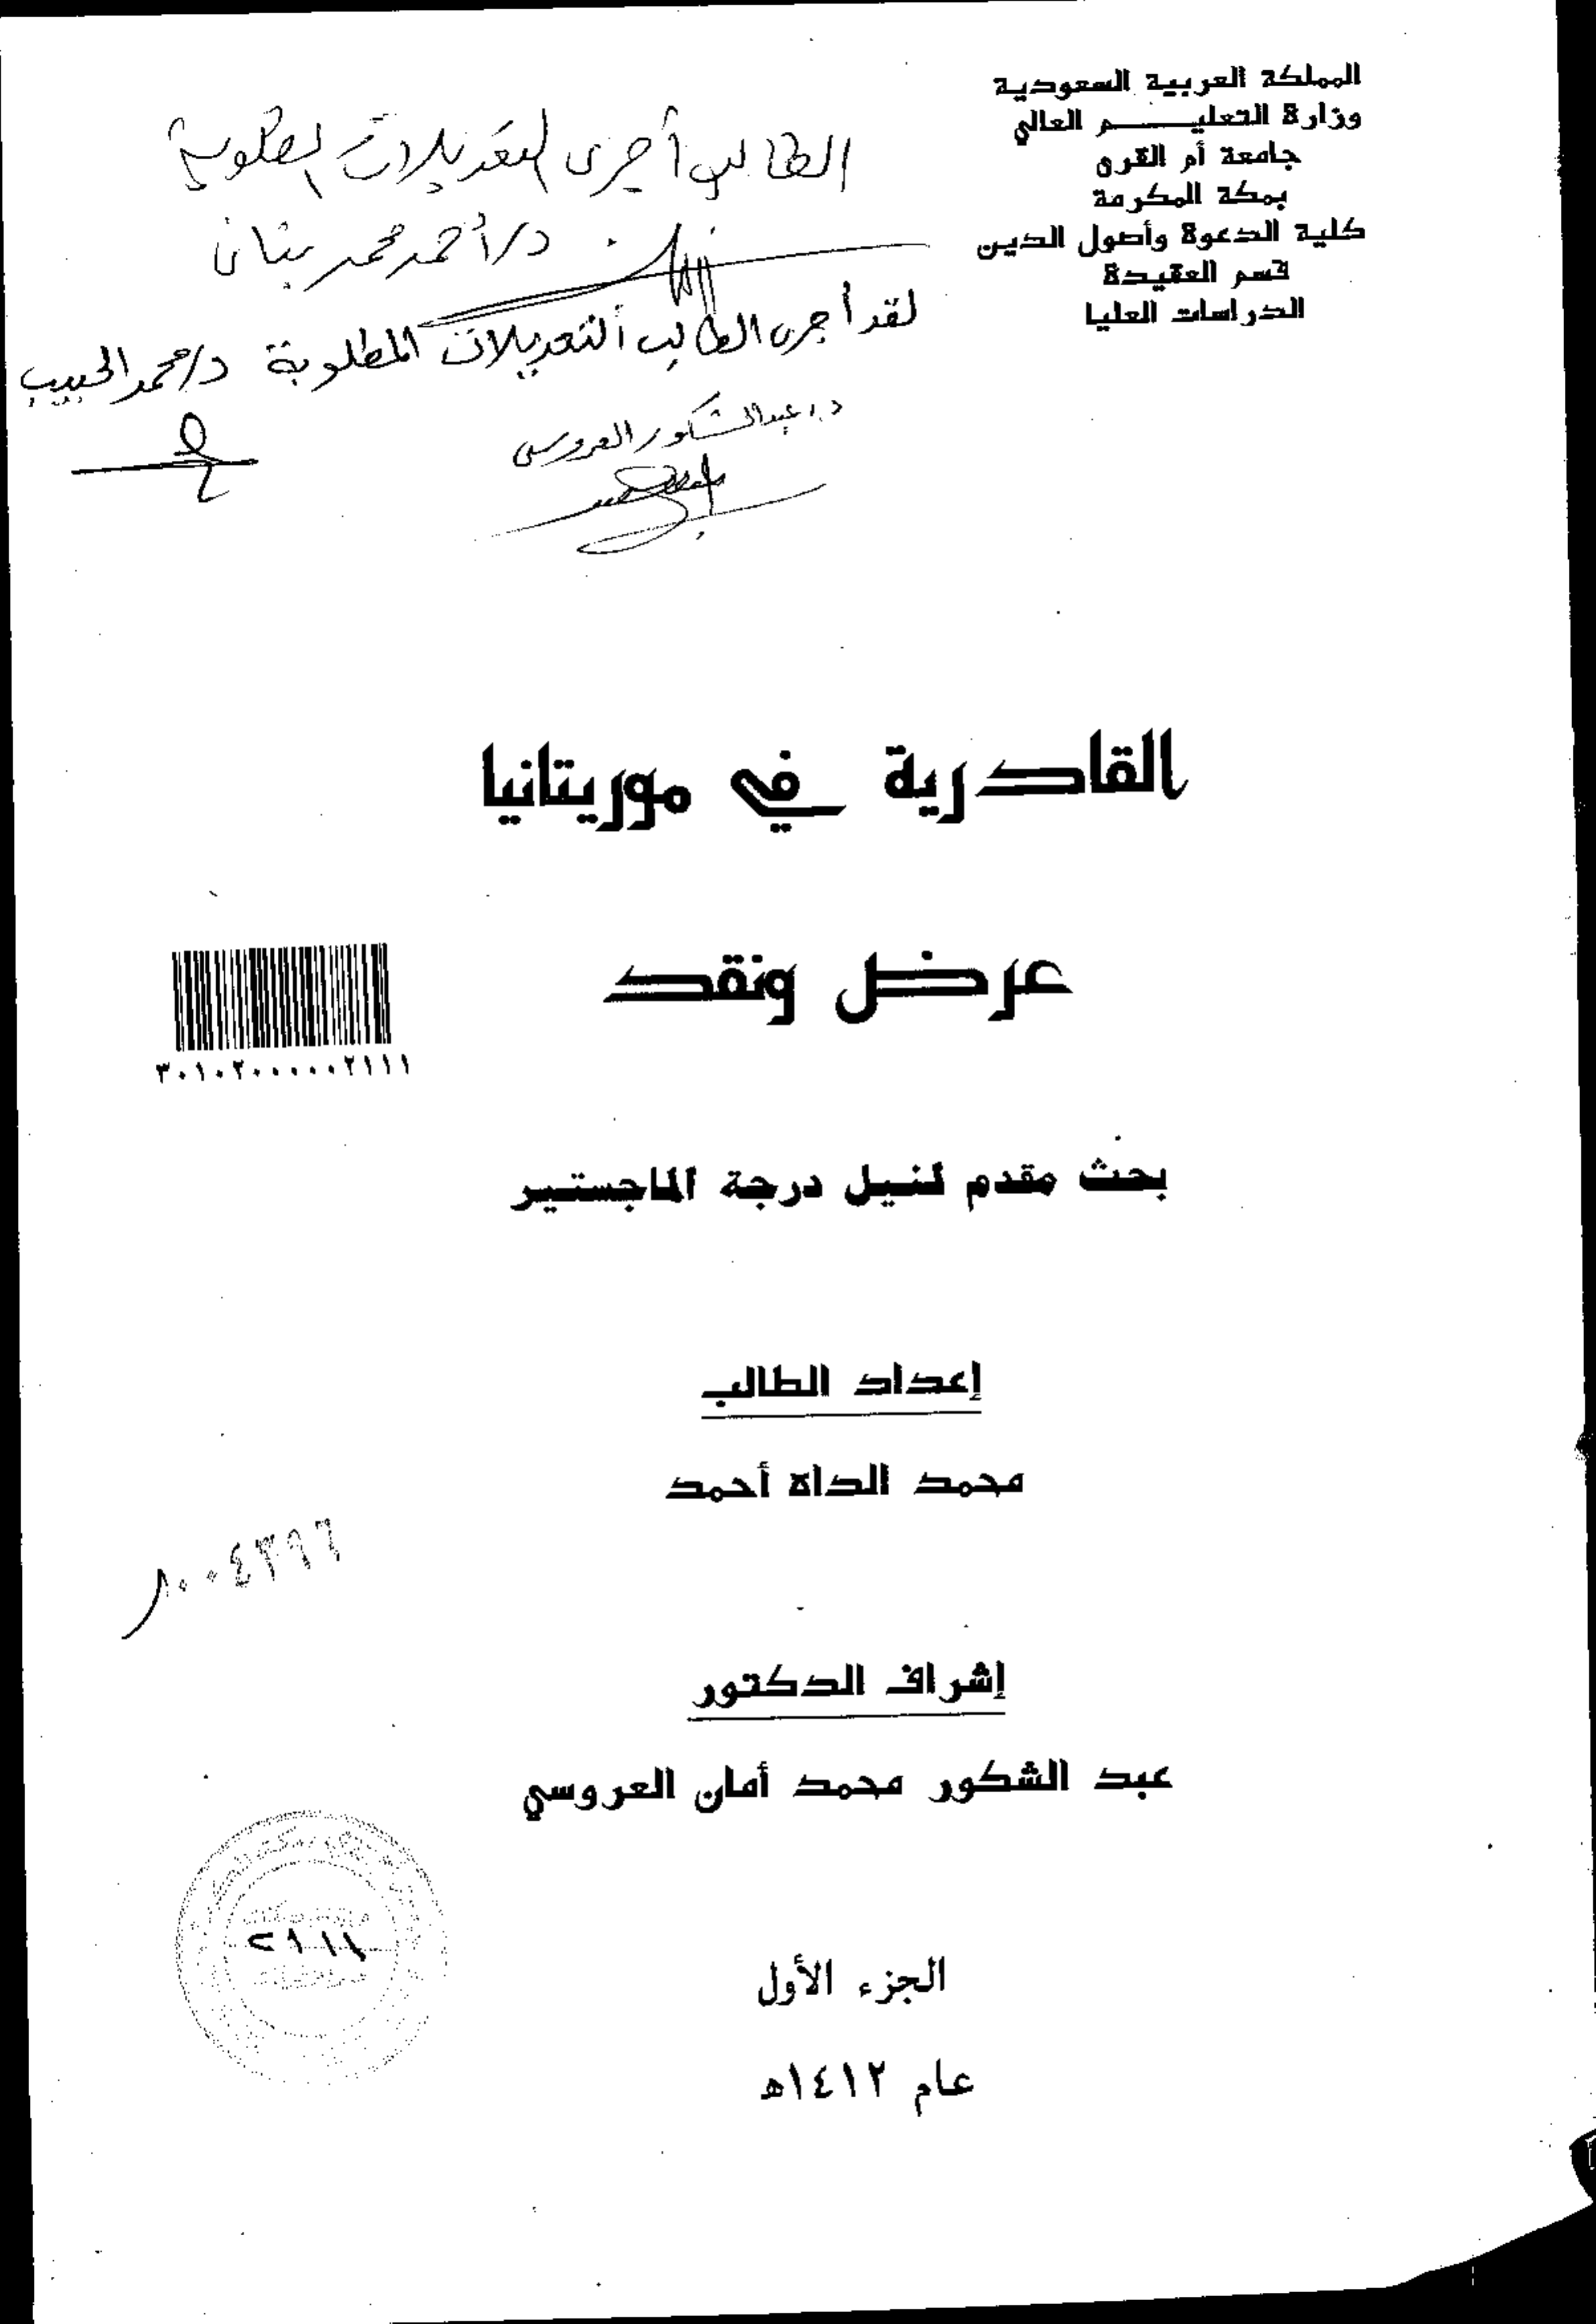 المملكة العربية السعودية
وزارة التعليــــم العالي
جامعة أم القرى
بمكة المكرمة
كلية الدعوة وأصول الدين
قسم العقيدة
الدراسات العليا
الطالب أجرى التعديلات المطلوبة
د/أحمد محمد بناني
لقد أجرى الطالب التعديلات المطلوبة د/محمد الحبيب
د. عبدالشكور العروسي
القادرية في موريتانيا
عرض ونقد
٣٠١٠٢٠٠٠٠٠٢١١١
بحث مقدم لنيل درجة الماجستير
إعداد الطالب
محمد الداه أحمد
٠٠٤٣٩٦
إشراف الدكتور
عبد الشكور محمد أمان العروسي
الجزء الأول
عام ١٤١٢ه